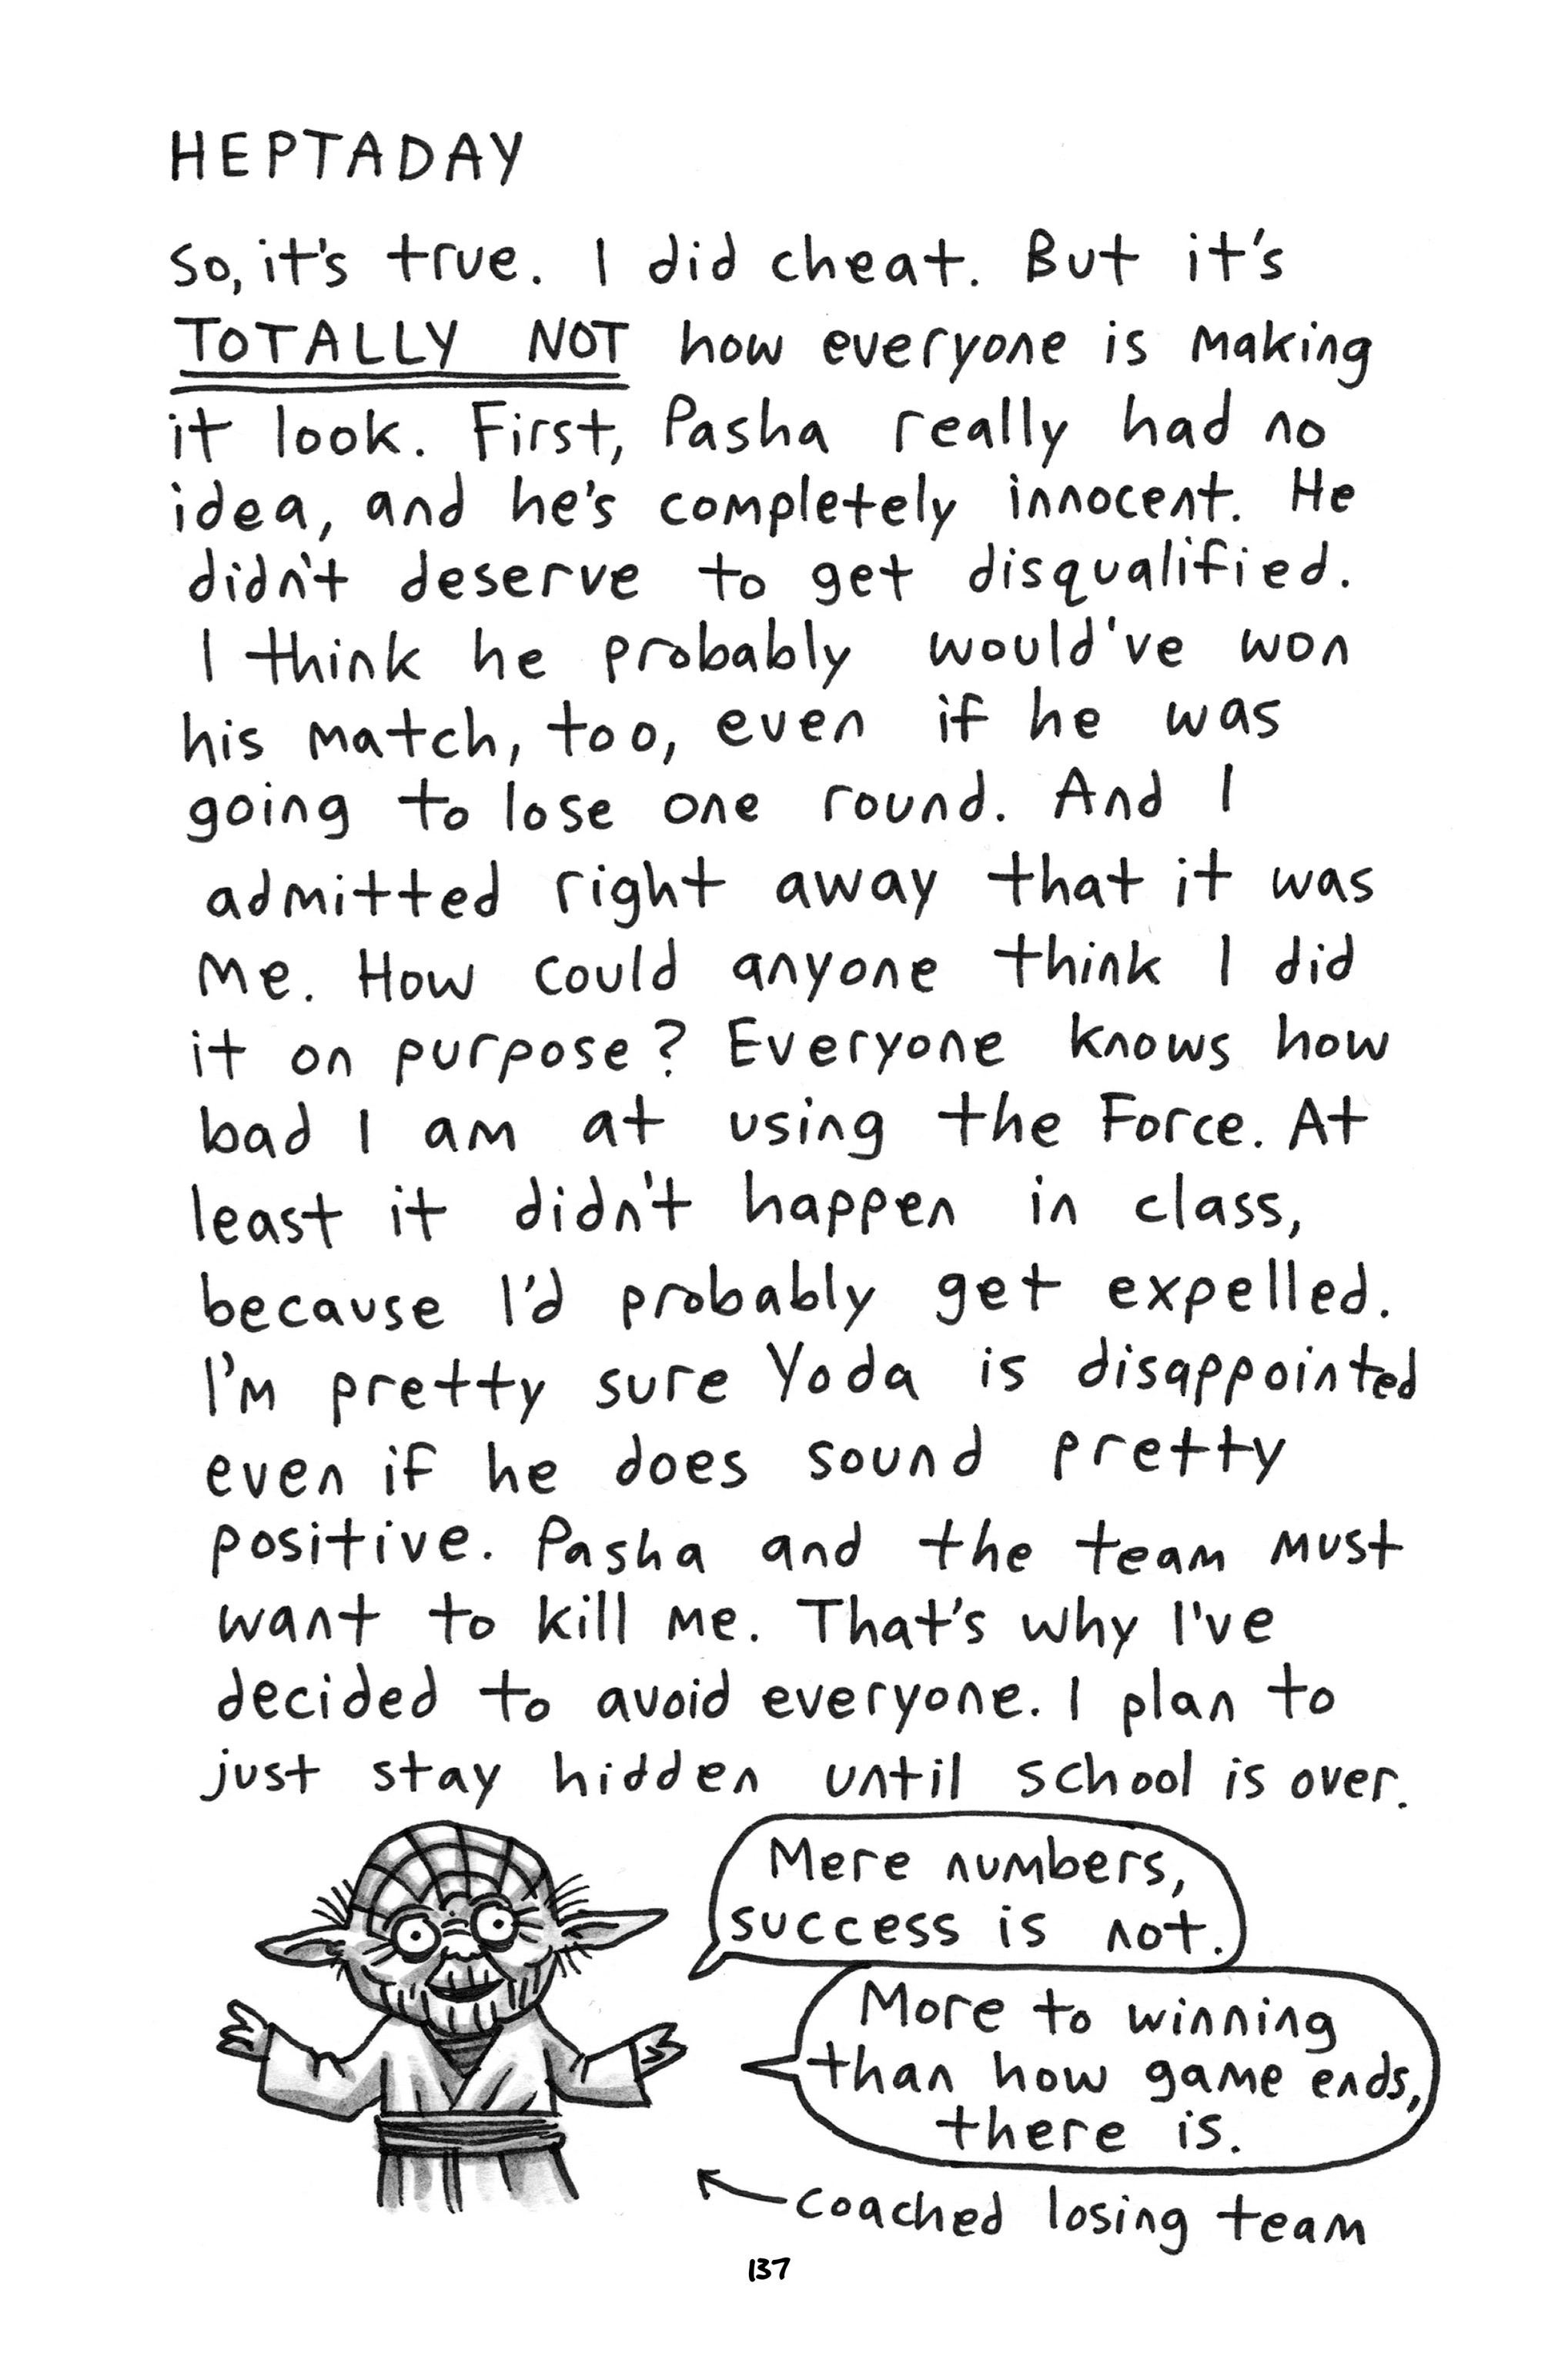 HEPTADAY
So, it's true. I did cheat. But it's
TOTALLY NOT how everyone is making
it look. First, Pasha really had no
idea, and he's completely innocent. He
didn't deserve to get disqualified.
I think he probably would've won
his match, too, even if he was
going to lose one round. And I
admitted right away that it was
me. How could anyone think I did
it on purpose? Everyone knows how
bad I am at using the Force. At
least it didn't happen in class,
because I'd probably get expelled.
I'm pretty sure Yoda is disappointed
even if he does sound pretty
positive. Pasha and the team must
want to kill me. That's why I've
decided to avoid everyone. I plan to
just stay hidden until school is over.
Mere numbers,
success is not.
More to winning
than how game ends,
there is.
coached losing team
137